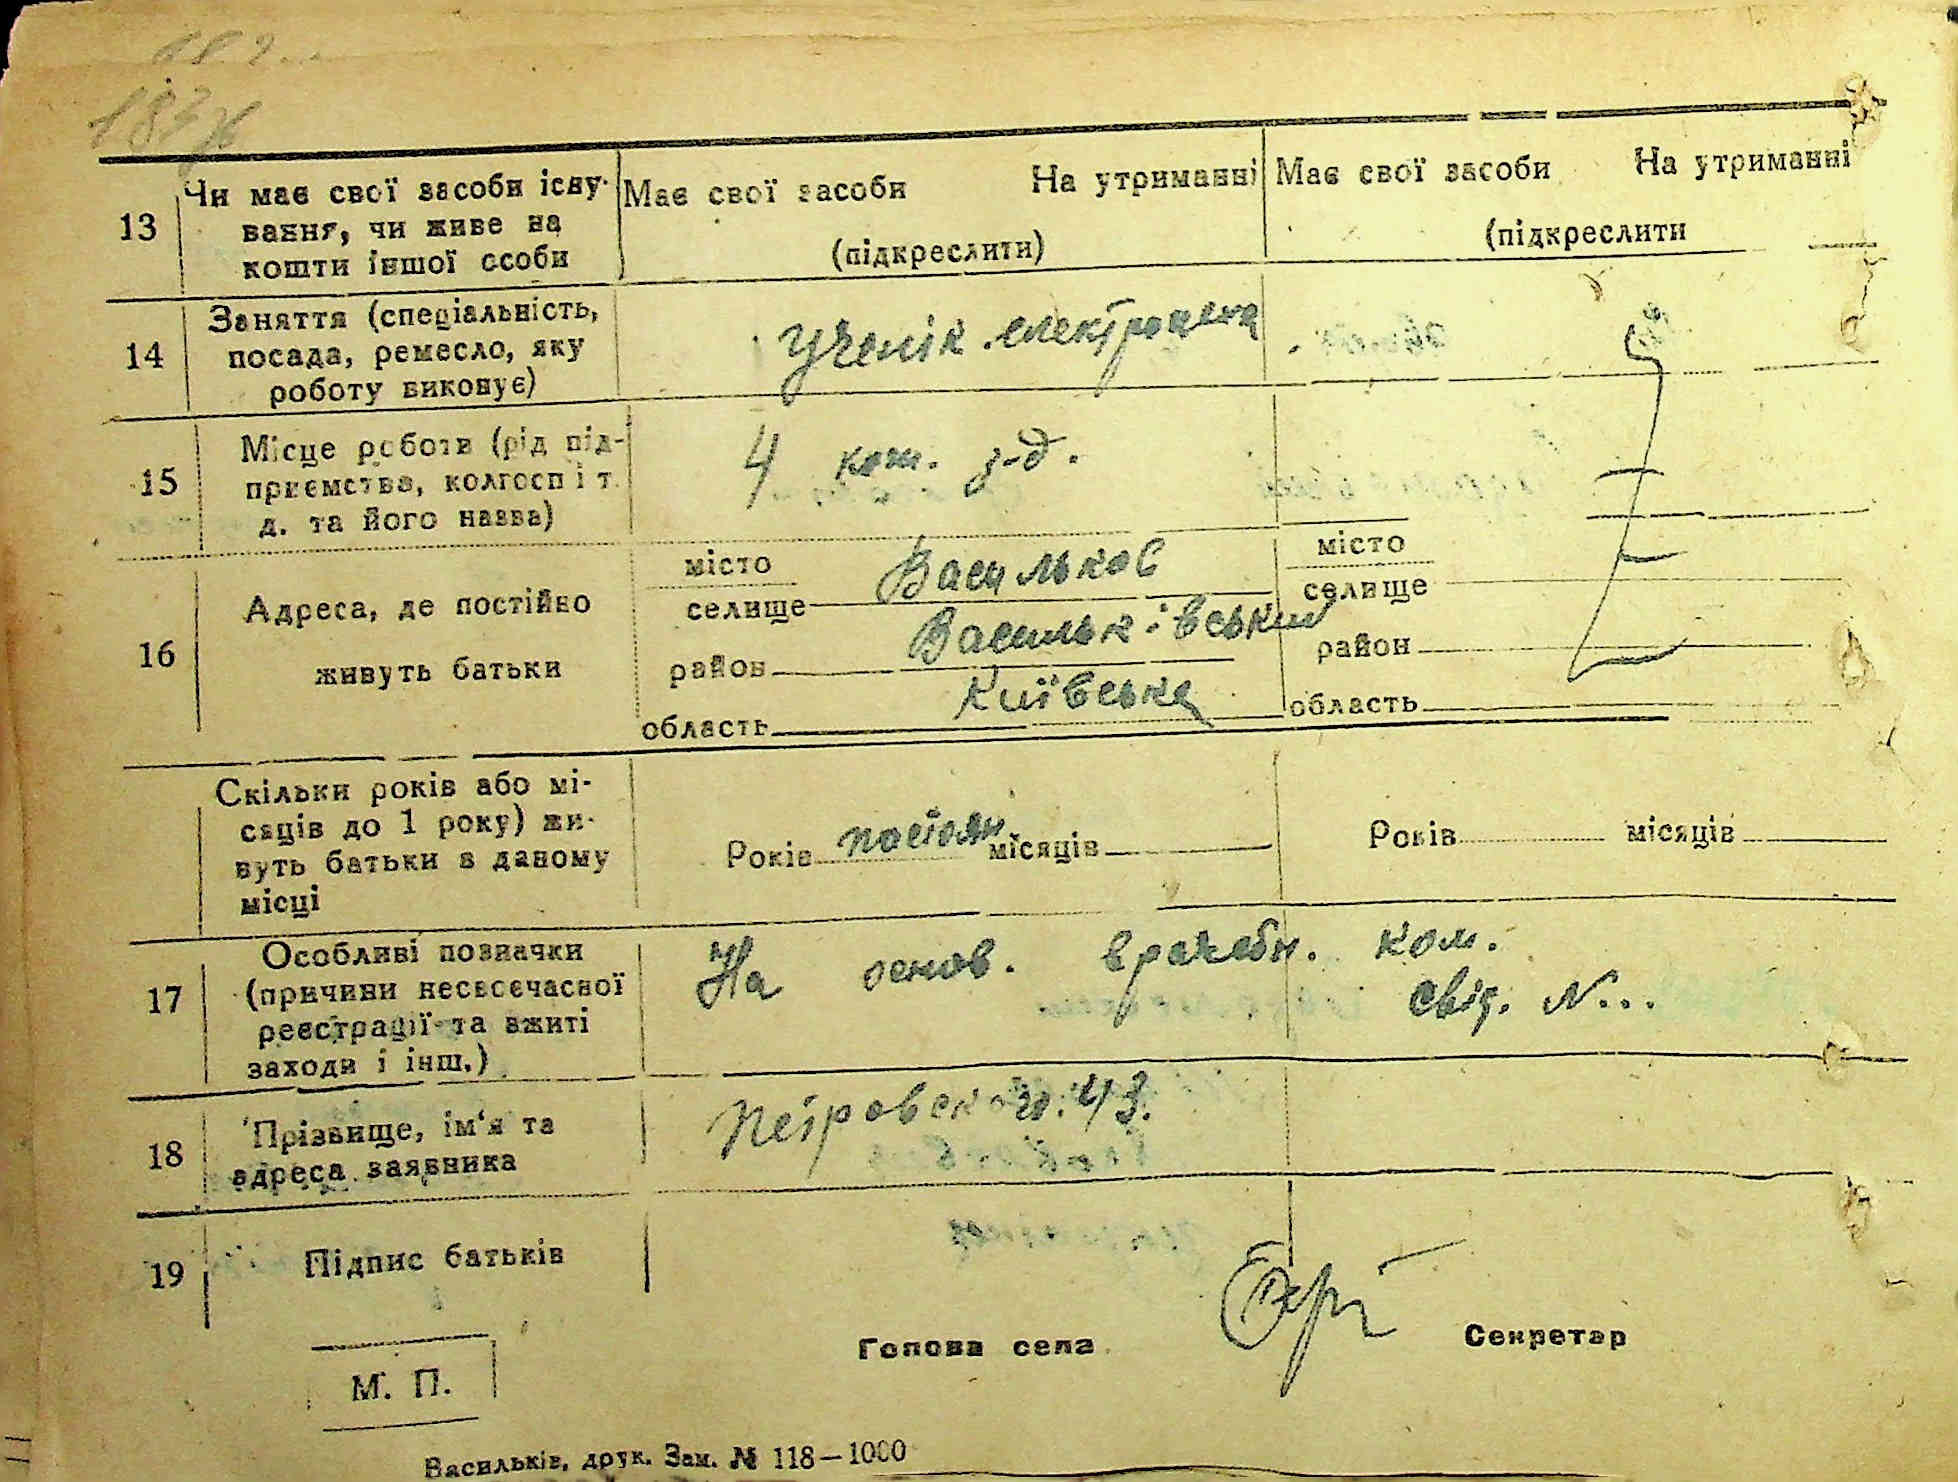 183
13
Чи має свої засоби існу-
вання, чи живе на
кошти іншої особи
Має свої засоби На утриманні
(підкреслити)
Має свої засоби На утриманні
(підкреслити
14
Заняття (спеціальність,
посада, ремесло, яку
роботу виконує)
Ученік
15
Місце роботи (рід під-
приємства, колгосп і т.
д. та його назва)
4 кож. з-д.
16
Адреса, де постійно
живуть батьки
місто
селище Васильков
район Васильківський
область Київська
місто
селище
район
область
Скільки років або мі-
сяців до 1 року) жи-
вуть батьки в даному
місці
Років постоян місяців
Років місяців
17
Особливі позначки
(причини несвоєчасної
реєстрації та вжиті
заходи і інш.)
На основ. врачебн. ком.
свід. N...
18
Прізвище, ім'я та
адреса заявника
Петровского 43.
19
Підпис батьків
Голова села
Секретар
М. П.
Васильків, друк. Зам. № 118—1000